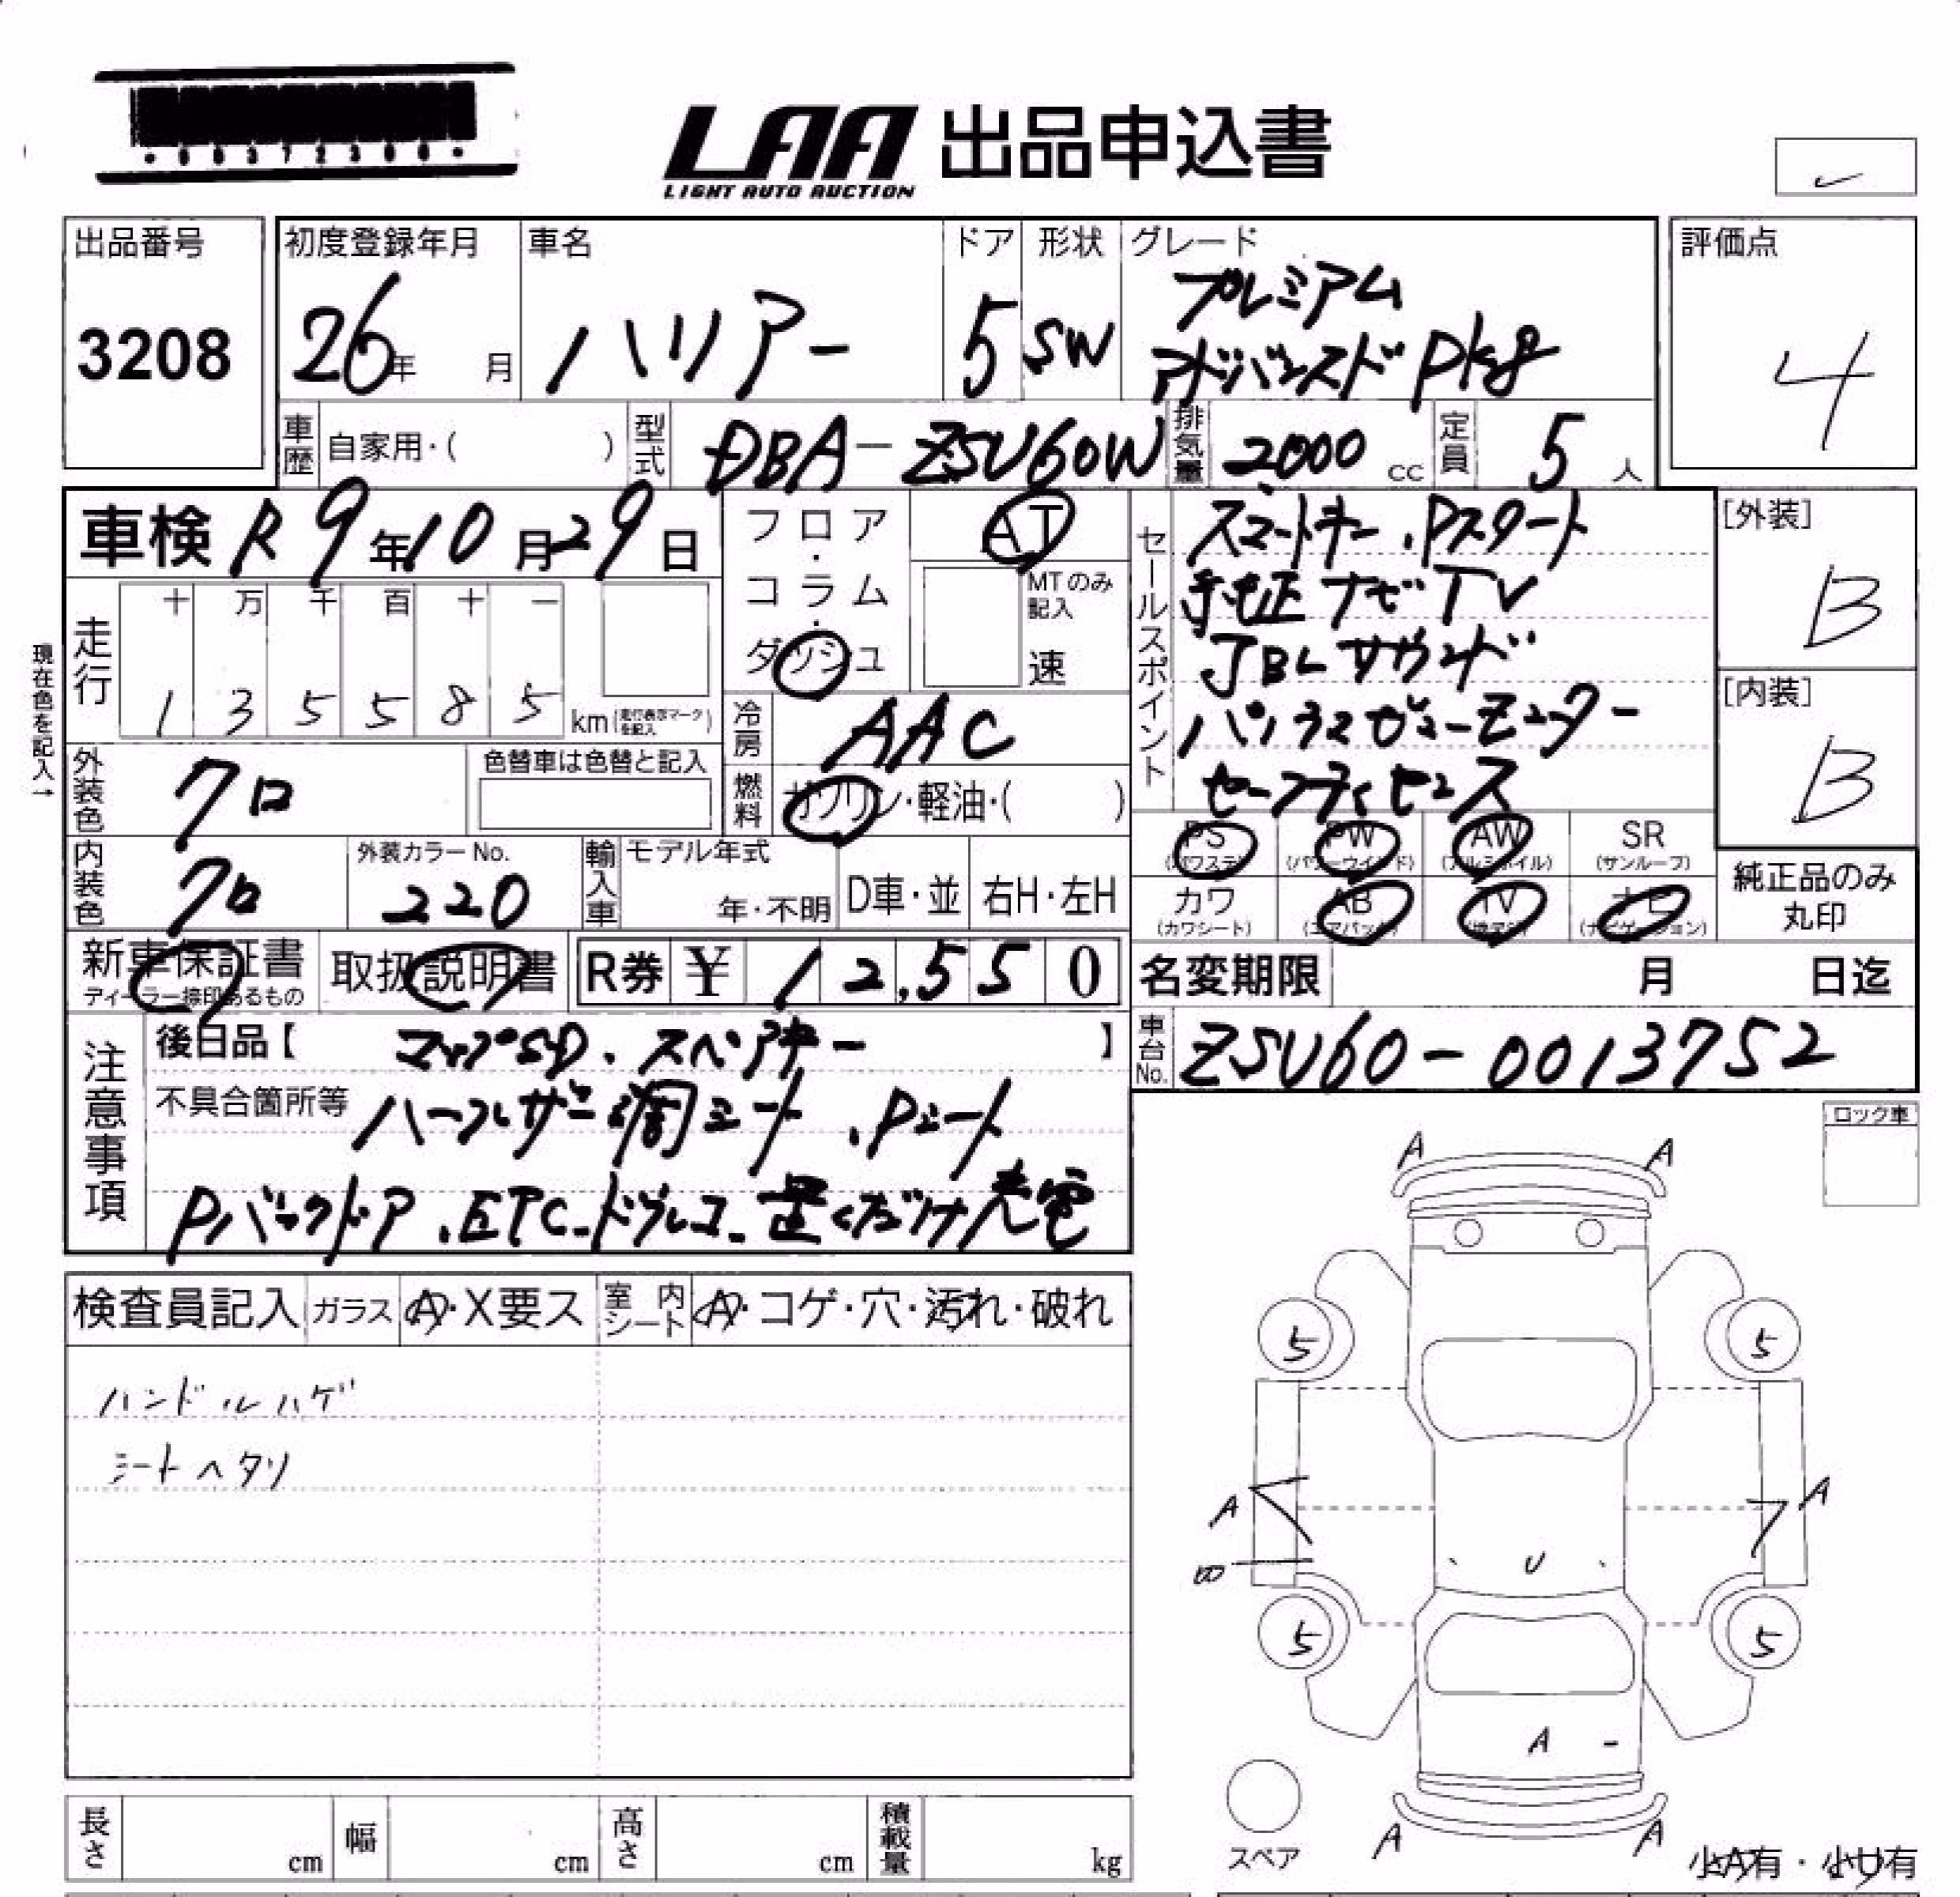 LAA 出品申込書
LIGHT AUTO AUCTION
出品番号
3208
初度登録年月
26年 月
車名
ハリアー
ドア
5
形状
SW
グレード
プレミアム
アドバンスドpkg
評価点
4
車歴 自家用・( )
型式 DBA-ZSU60W
排気量 2000 cc
定員 5 人
車検 R9年10月29日
フロア・コラム・ダッシュ
AT
MTのみ記入
速
セールスポイント
スマートキー、Pスタート
純正ナビTV
JBLサウンド
パノラマビューモニター
セーフティセンス
[外装]
B
[内装]
B
現在色を記入→
走行
十 万 千 百 十 一
1 3 5 5 8 5 km(走行表示マークを記入)
冷房 AAC
外装色 クロ
色替車は色替と記入
燃料 ガソリン・軽油・( )
PS (パワステ)
PW (パワーウインド)
AW (アルミホイル)
SR (サンルーフ)
内装色 クロ
外装カラーNo.
220
輸入車
モデル年式
年・不明
D車・並
右H・左H
カワ (カワシート)
AB (エアバック)
TV
ナビ (ナビゲーション)
純正品のみ丸印
新車保証書
ディーラー捺印あるもの
取扱説明書
R券 ¥ 12,550
名変期限 月 日迄
注意事項
後日品【 マップSD、スペアキー 】
車台No. ZSU60-0013752
不具合箇所等 ハーフレザー調シート、Pシート
Pバックドア、ETC、ドラレコ、置くだけ充電
ロック車
検査員記入 ガラス A・X要ス 室内シート A・コゲ・穴・汚れ・破れ
ハンドルハゲ
シートヘタリ
A A
5 5
A A
U
5 5
A
A A
スペア
長さ cm
幅 cm
高さ cm
積載量 kg
小A有・小U有